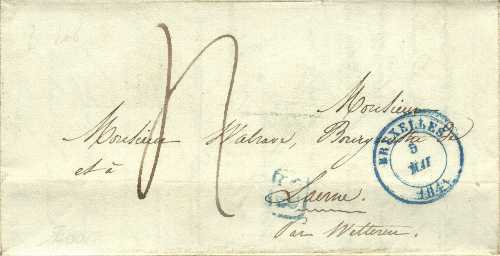 Monsieur
Monsieur Walrave, Bourgmestre de
et à
Laerne.
Par Wetteren.
BRUXELLES
5
MAI
184